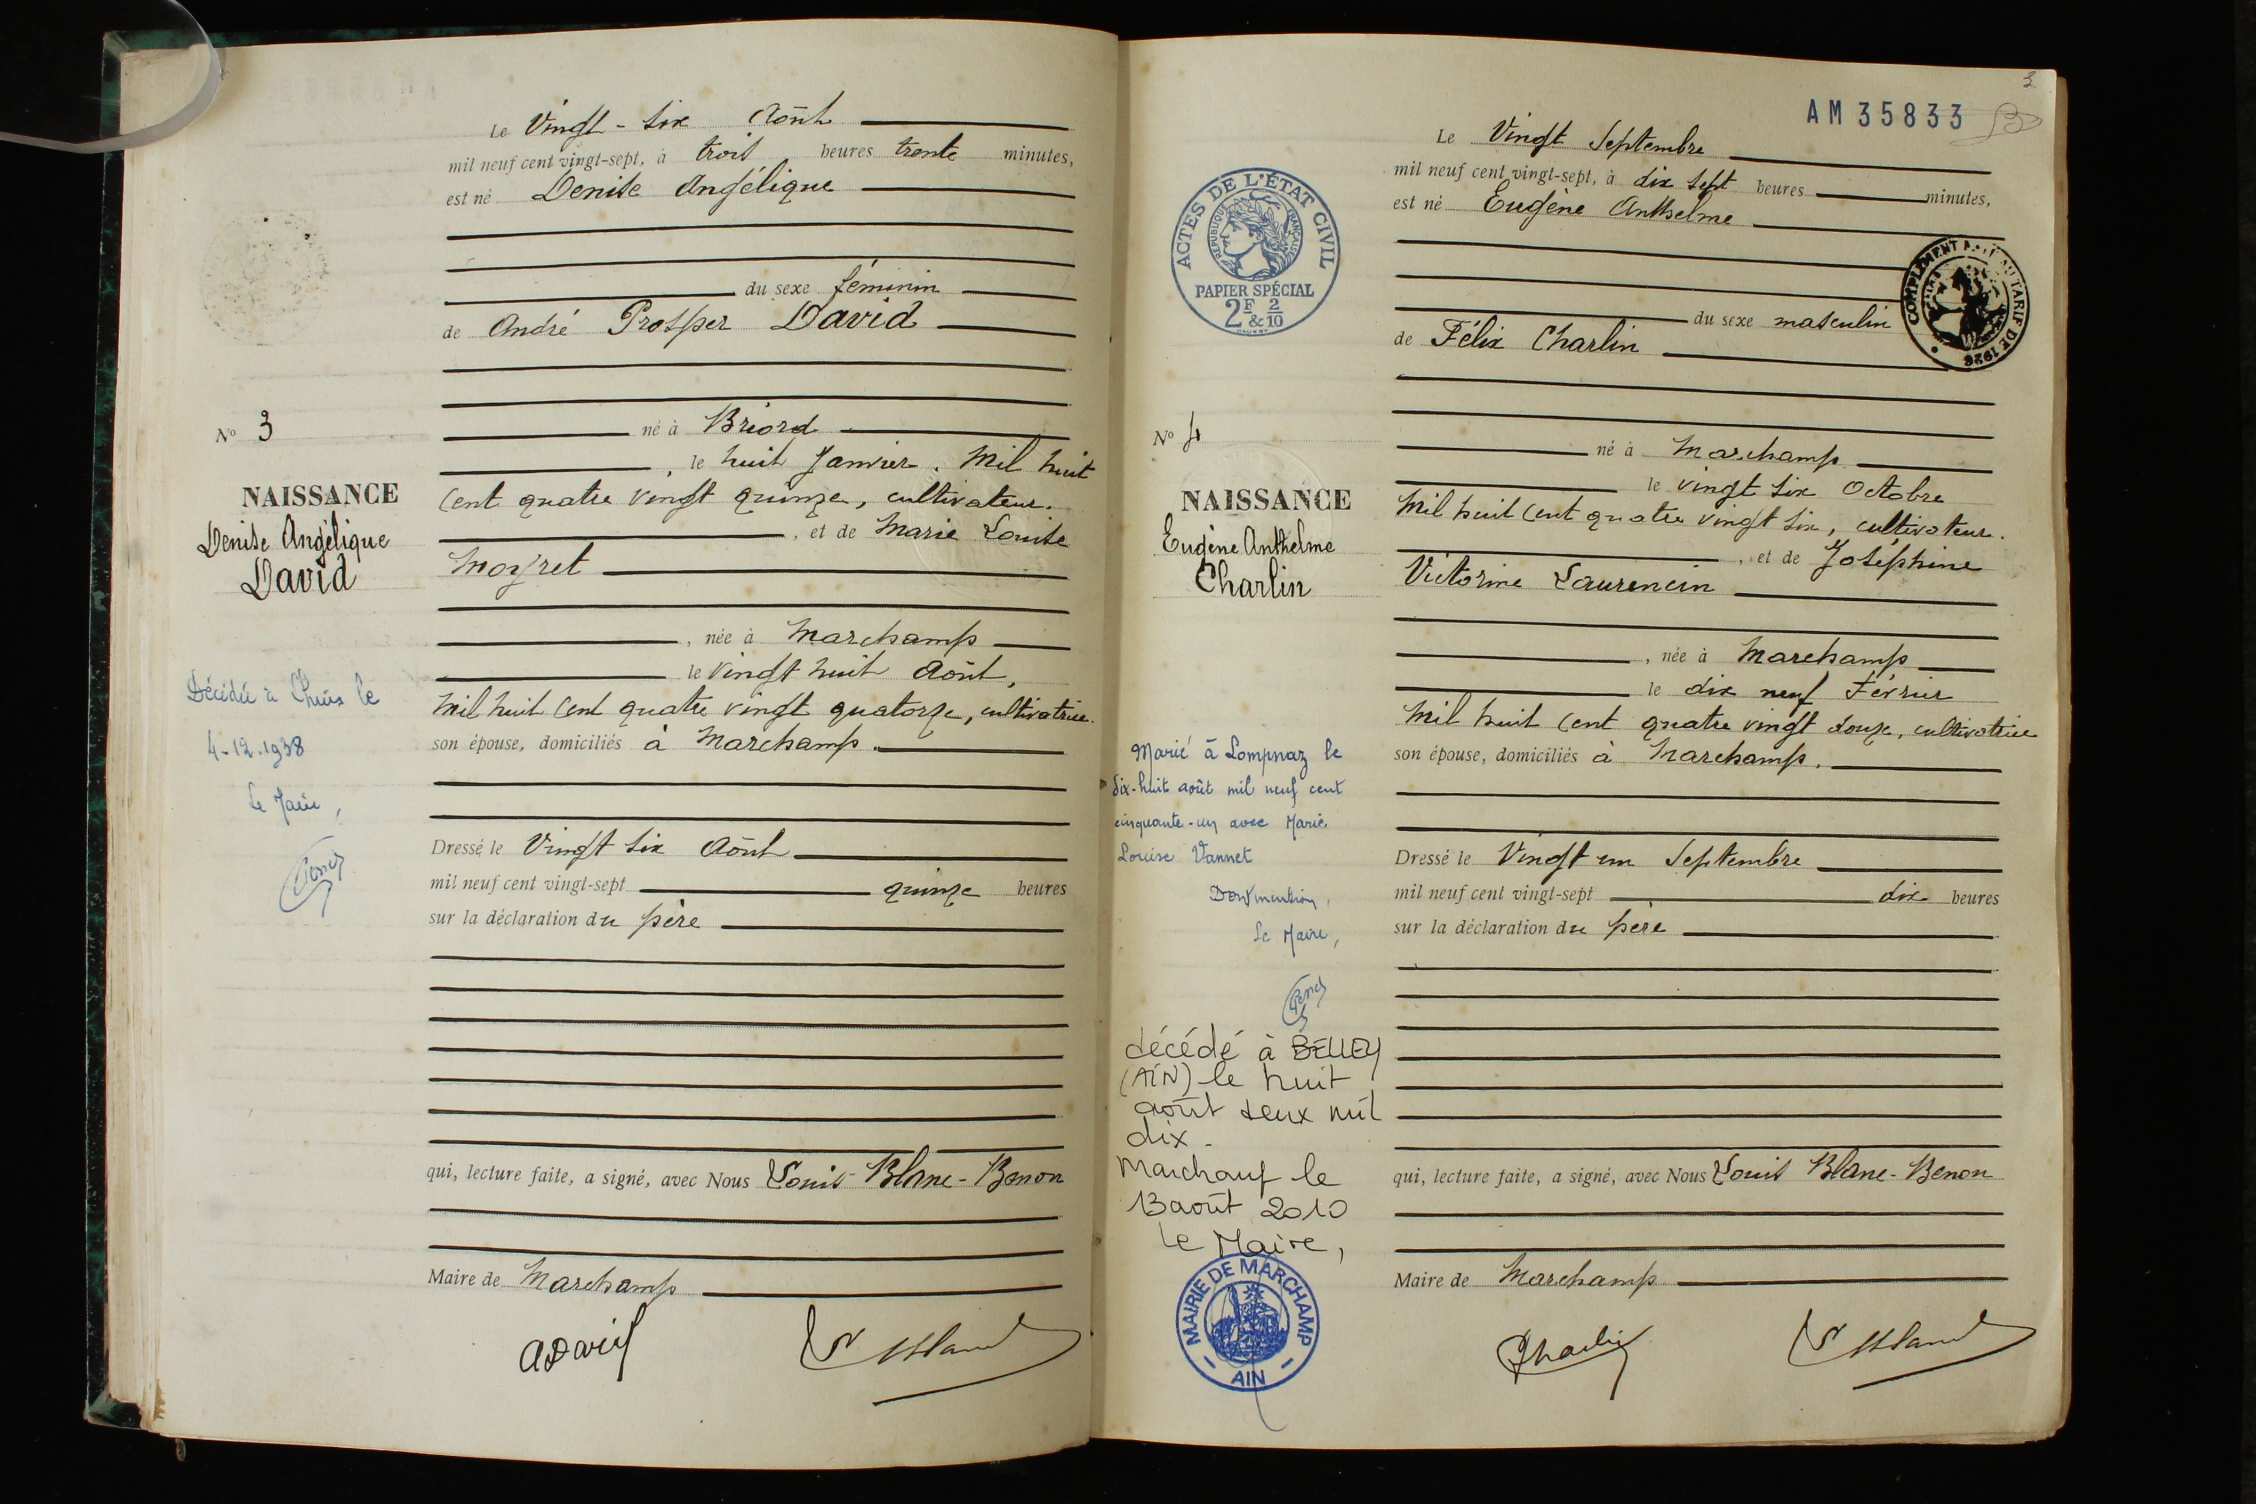 Le Vingt-six Août
mil neuf cent vingt-sept, à trois heures trente minutes,
est né Denise Angélique
du sexe féminin
de André Prosper David
né à Briord
, le huit Janvier. Mil huit
cent quatre vingt quinze, cultivateur.
, et de Marie Louise
, née à Marchamp
le vingt huit Août,
Mil huit cent quatre vingt quatorze, cultivatrice.
son épouse, domiciliés à Marchamp.
Dressé le Vingt six Août
mil neuf cent vingt-sept quinze heures
sur la déclaration du père
qui, lecture faite, a signé, avec Nous Louis Blanc-Benon
Maire de Marchamp
ADavid
No 3
NAISSANCE
Denise Angélique
David
Décédée à le
4-12-1938
Le Maire,
3
AM 35833
Le Vingt Septembre
mil neuf cent vingt-sept, à dix sept heures minutes,
est né Eugène Anthelme
du sexe masculin
de Félix Charlin
né à Marchamp
le vingt six Octobre
Mil huit cent quatre vingt six, cultivateur.
, et de Joséphine
Victorine Laurencin
, née à Marchamp
le dix neuf Février
Mil huit cent quatre vingt douze, cultivatrice
son épouse, domiciliés à Marchamp.
Dressé le Vingt un Septembre
mil neuf cent vingt-sept dix heures
sur la déclaration du père
qui, lecture faite, a signé, avec Nous Louis Blanc-Benon
Maire de Marchamp
Charlin
ACTES DE L'ÉTAT CIVIL
RÉPUBLIQUE FRANÇAISE
PAPIER SPÉCIAL
2F & 2/10
COMPLÉMENT TARIF DE 1926
No 4
NAISSANCE
Eugène Anthelme
Charlin
Marié à Lompnaz le
dix-huit août mil neuf cent
cinquante-un avec Marie
Louise Vannet
Dont mention,
Le Maire,
décédé à BELLEY
(AIN) le huit
août deux mil
dix.
Marchamp le
13 août 2010
Le Maire,
MAIRIE DE MARCHAMP
AIN